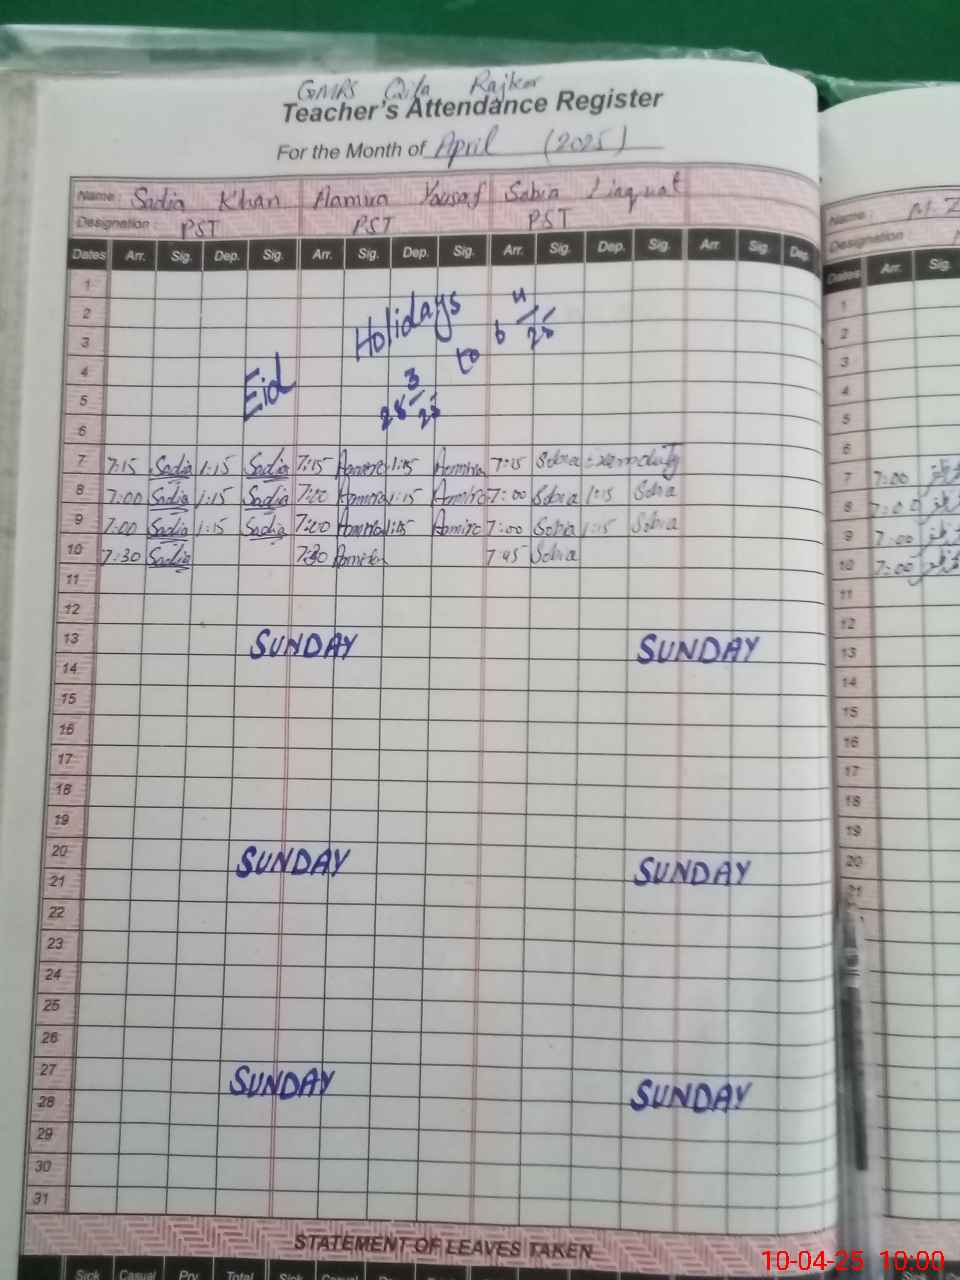 GMPS Qila Rajkor
Teacher's Attendance Register
For the Month of April (2025)
Name : Sadia Khan Aamira Yousaf Sobia Liaquat
Designation : PST PST PST
Dates Arr. Sig. Dep. Sig. Arr. Sig. Dep. Sig. Arr. Sig. Dep. Sig. Arr. Sig. Dep.
1
2
3
4
5
6
Eid Holidays
28 3/25 to 6 4/25
7 7:15 Sadia 1:15 Sadia 7:15 Aamira 1:15 Aamira 7:15 Sobia
8 7:00 Sadia 1:15 Sadia 7:00 Aamira 1:15 Aamira 7:00 Sobia 1:15 Sobia
9 7:00 Sadia 1:15 Sadia 7:00 Aamira 1:15 Aamira 7:00 Sobia 1:15 Sobia
10 7:30 Sadia 7:30 Aamira 7:45 Sobia
11
12
13 SUNDAY SUNDAY
14
15
16
17
18
19
20 SUNDAY SUNDAY
21
22
23
24
25
26
27 SUNDAY SUNDAY
28
29
30
31
STATEMENT OF LEAVES TAKEN
Sick Casual Prv Total Sick
Name : M.
Designation
Dates Arr. Sig.
1
2
3
4
5
6
7 7:00
8 7:00
9 7:00
10 7:00
11
12
13
14
15
16
17
18
19
20
21
10-04-25 10:00